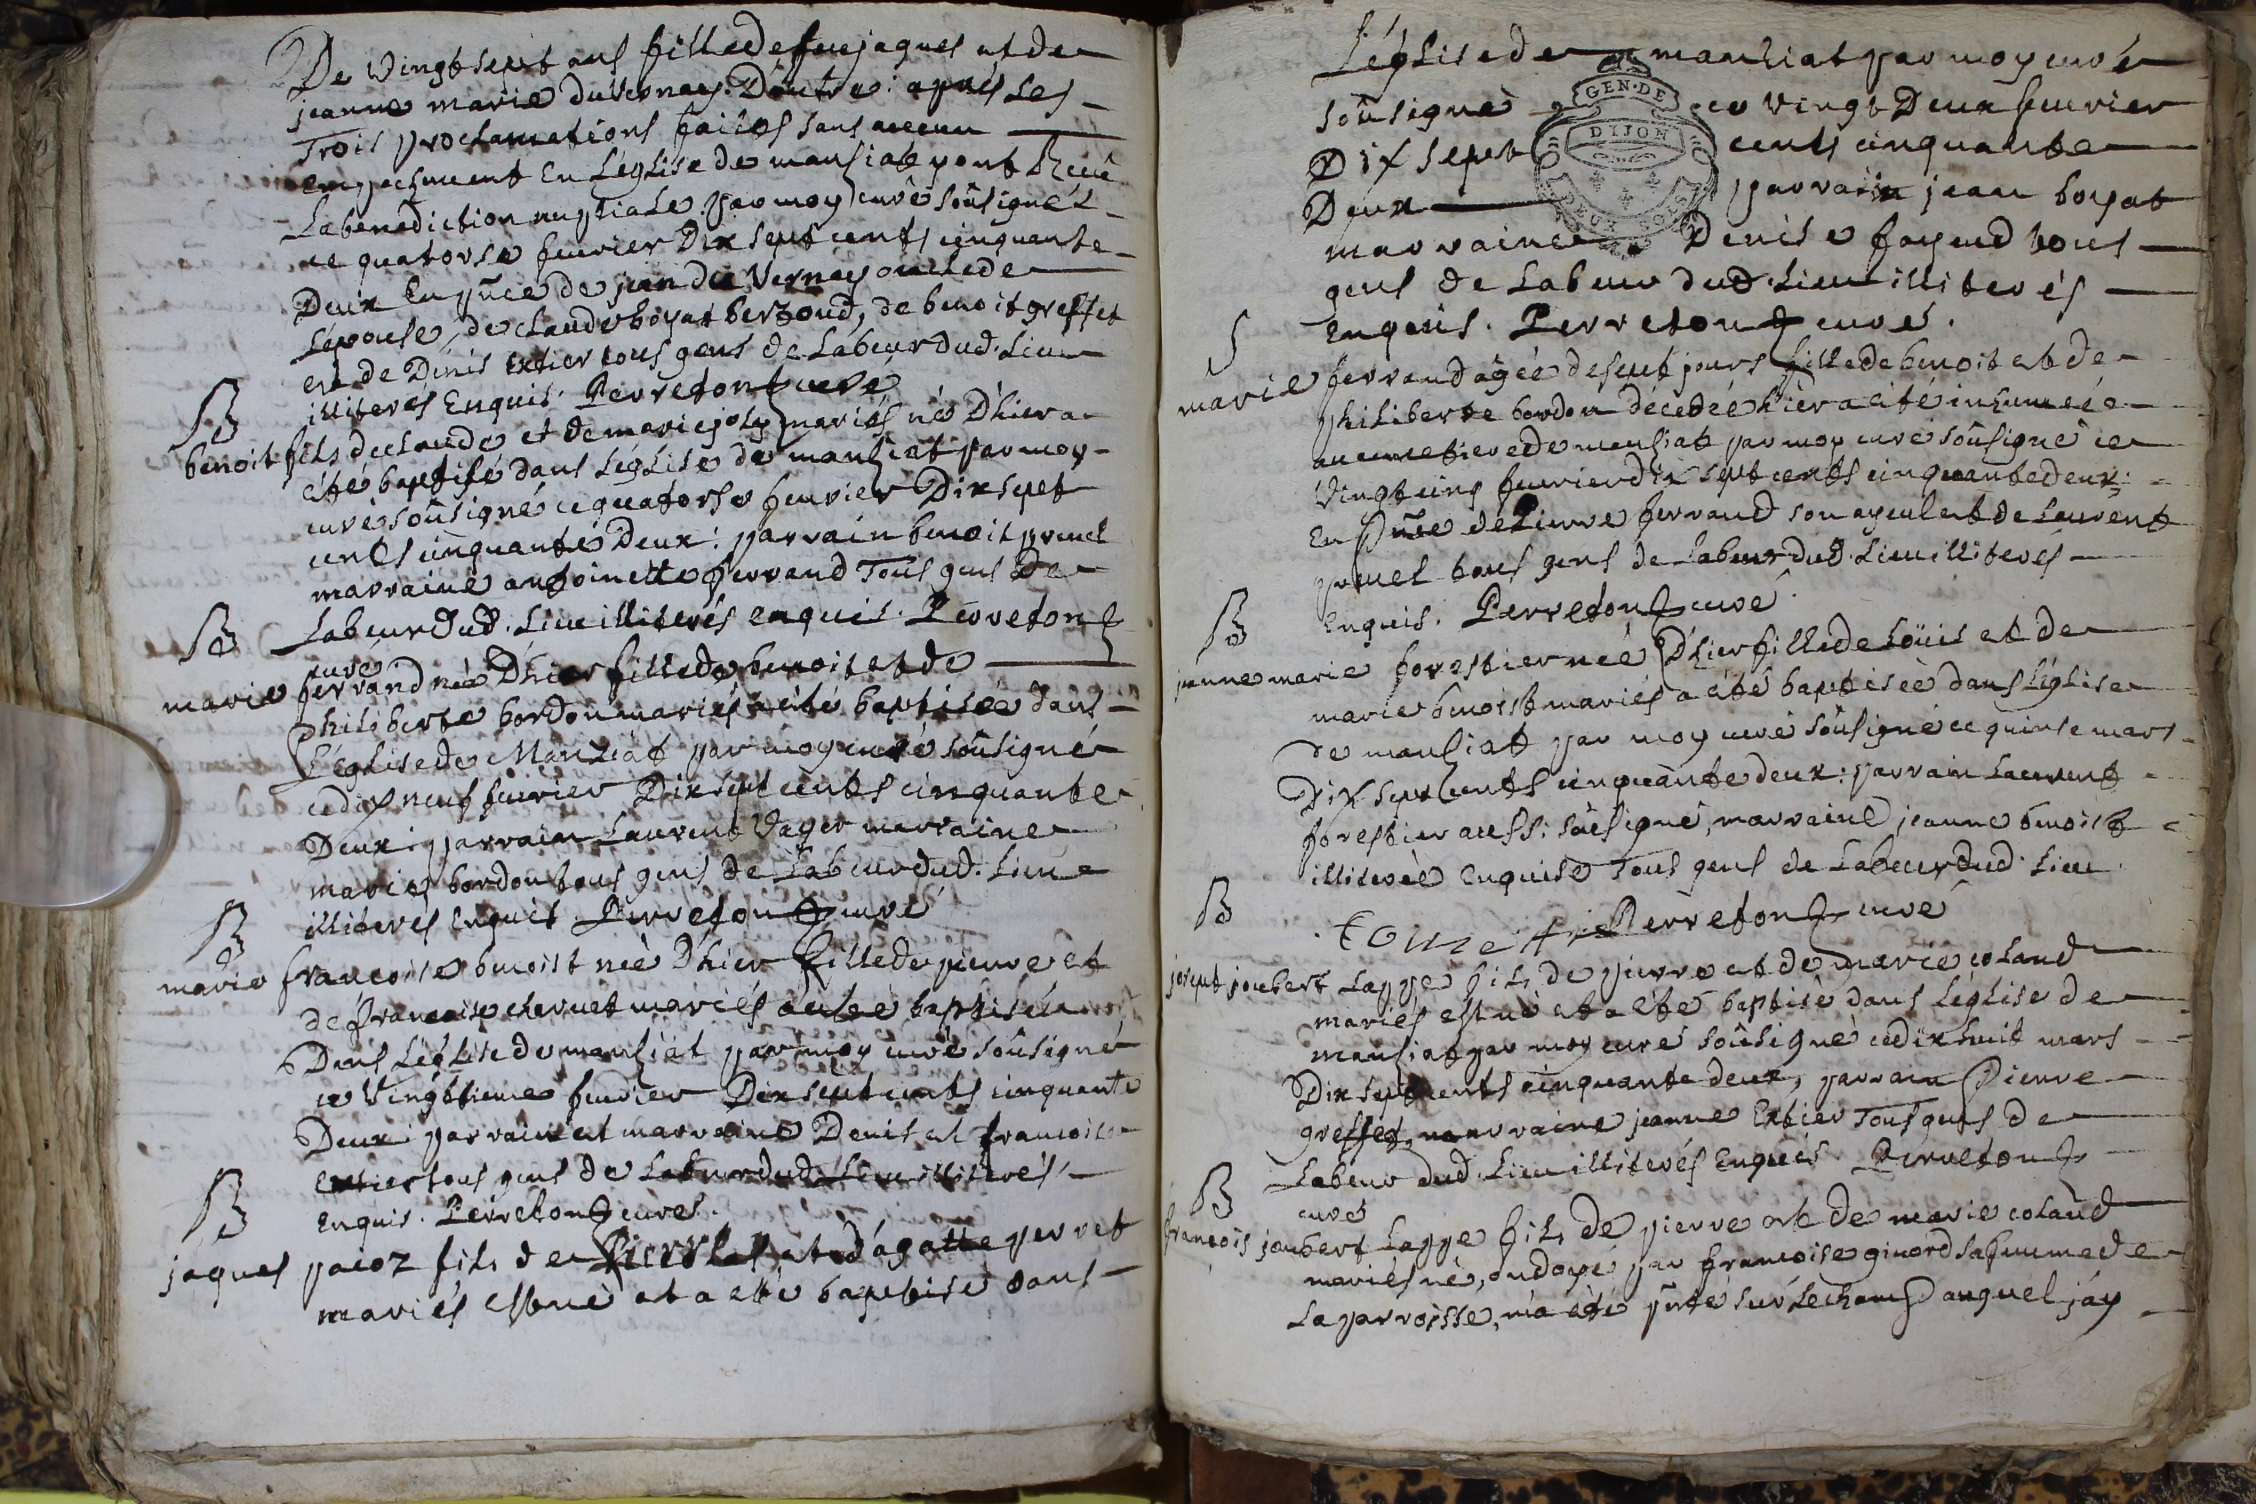 De vingt sept ans fille de feu jaques et de
jeanne marie duvernay. D'autre: apres les
Trois proclamations faites sans aucun
empechement En L'eglise de manziat y ont Receu
La benediction nuptiale par moy curé soûsigné
ce quatorse fevrier Dix sept cents cinquante
Deux En pñce de jean du Vernay oncle de
L'épouse, de claude boyat berzoud, de benoit greffet
et de Denis Extier tous gens de Labeur dud. Lieu
illiterés Enquis. Perreton curé
B
benoit fils de claude et de marie joly mariés né D'hier a
été baptisé dans L'église de manziat par moy
curé soûsigné ce quatorse fevrier Dix sept
cents cinquante Deux: parrain benoit pruel
marraine antoinette ferrand Tous gens De
Labeur dud. Lieu illiterés enquis. Perreton
curé
B
marie ferrand née D'hier fille de benoit et de
philiberte bordon mariés a été baptisée dans
L'église de Manziat par moy curé soûsigné
ce dix neuf fevrier Dix sept cents cinquante
Deux: parrain Laurent Vager marraine
marie bordon tous gens de Labeur dud. Lieu
illiterés Enquis. Perreton curé
B
marie francoise benoist née D'hier fille de pierre et
de francoise chernet mariés a été baptisée
Dans L'église de manziat par moy curé soûsigné
ce Vingttieme fevrier Dix sept cents cinquante
Deux: parrain et marraine Denis et francoise
Extier tous gens de Labeur dud. Lieu illiterés
Enquis. Perreton curé.
B
jaques paioz fils de et d'agatte perret
mariés est né et a été baptisé dans
L'église de manziat par moy curé
soûsigné ce vingt Deux fevrier
Dix sept cents cinquante
Deux parrain jean boyat
marraine Denise fayend tous
gens de Labeur dud. Lieu illiterés
enquis. Perreton curé.
GEN·DE
DIJON
DEUX SOLS
S
marie ferrand agée de sept jours fille de benoit et de
philiberte bordon décedée hier a été inhumée
au cimetiere de manziat par moy curé soûsigné ce
Vingt cinq fevrier dix sept cents cinquante deux:
En pñce de Pierre ferrand son ayeul et de Laurent
pruel tous gens de Labeur dud. Lieu illiterés
Enquis. Perreton curé.
B
jeanne marie forestier née D'hier fille de Loüis et de
marie benoist mariés a été baptisée dans L'église
de manziat par moy curé soûsigné ce quinse mars
Dix sept cents cinquante deux: parrain Laurent
forestier aussi soûsigné, marraine jeanne benoist
illiterée Enquise Tous gens de Labeur dud. Lieu
Perreton curé
B
josept joubert Lappe fils de pierre et de marie coland
mariés est né et a été baptisé dans L'église de
manziat par moy curé soûsigné ce dix huit mars
Dix sept cents cinquante deux, parrain Pierre
greffet, marraine jeanne Extier Tous gens de
Labeur dud. Lieu illiterés Enquis. Perreton
curé
B
francois joubert Lappe fils de pierre et de marie coland
mariés né, ondoyé par francoise ginord sa femme de
La parroisse, m'a été pñté sur Le champ auquel j'ay